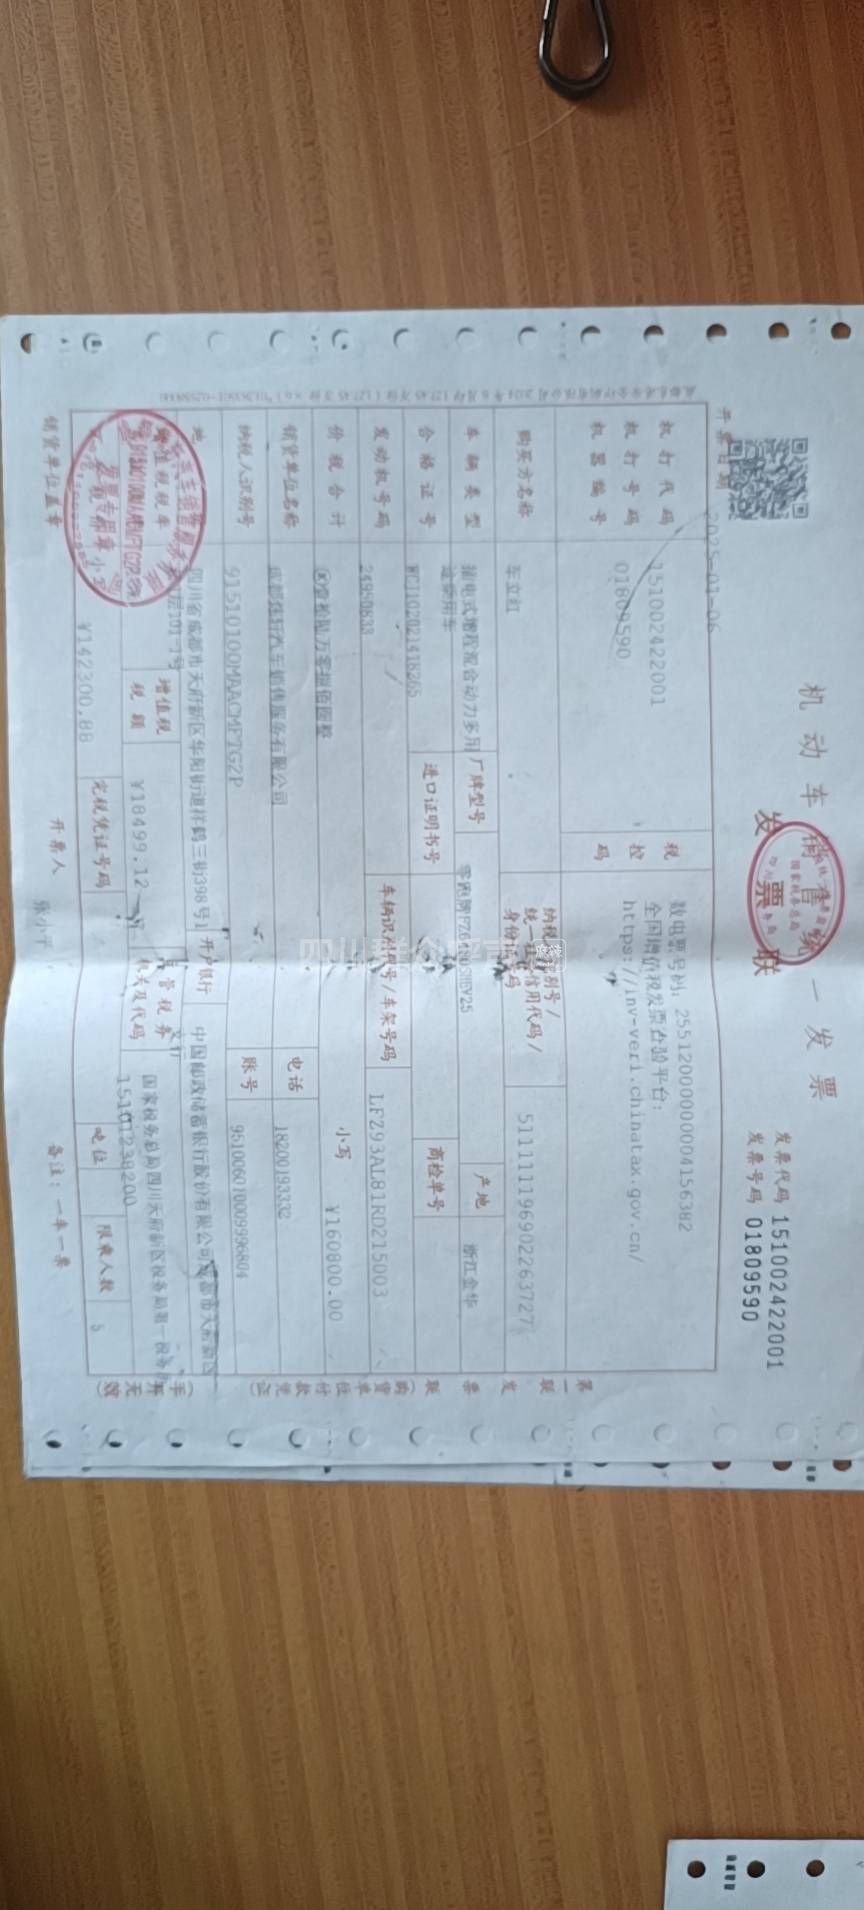 机动车销售统一发票
发票联
发票代码 151002422001
发票号码 01809590
开票日期 2025-01-06
机打代码 151002422001
机打号码 01809590
机器编号
税控码
数电票号码: 25512000000004156382
全国增值税发票查验平台:
https://inv-veri.chinatax.gov.cn/
购买方名称 车立红
纳税人识别号/
统一社会信用代码/
身份证号码
511111196902263727
车辆类型 插电式增程混合动力多用途乘用车
厂牌型号
产地 浙江金华
合格证号 WCJ102021418265
进口证明书号
商检单号
发动机号码 24950833
车辆识别代号/车架号码 LFZ93AL81RD215003
价税合计
小写 ¥160800.00
销货单位名称
电话 18200193332
纳税人识别号 91510100MAACMFTG2P
账号 951006010009996804
地址 四川省成都市天府新区华阳街道祥鹤三街398号1
开户银行 中国邮政储蓄银行股份有限公司成都市天府新区
增值税税率
增值税税额 ¥18499.12
主管税务机关及代码
国家税务总局四川天府新区税务局第一税务所
15101238200
小写 ¥142300.88
完税凭证号码
吨位
限乘人数 5
销货单位盖章
开票人 张小平
备注: 一车一票
第一联 发票联 (购货单位付款凭证) (手开无效)
发票专用章